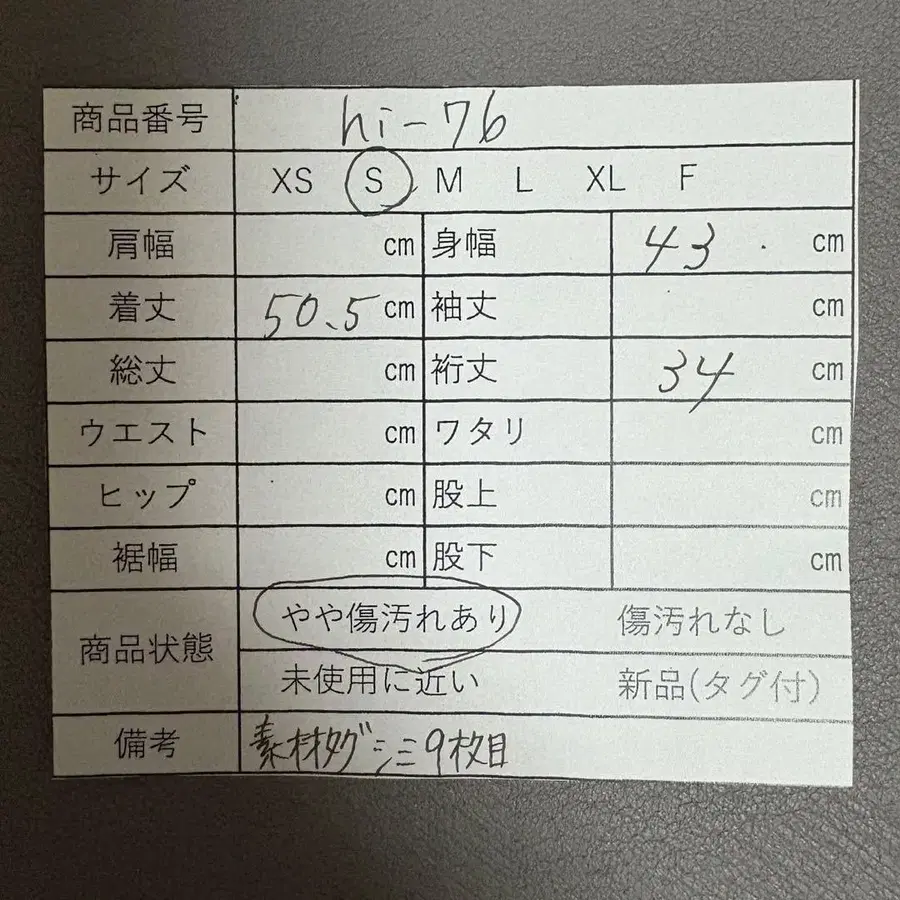 商品番号 hi-76
サイズ XS S M L XL F
肩幅 cm 身幅 43 cm
着丈 50.5 cm 袖丈 cm
総丈 cm 裄丈 34 cm
ウエスト cm ワタリ cm
ヒップ cm 股上 cm
裾幅 cm 股下 cm
商品状態 やや傷汚れあり 傷汚れなし
未使用に近い 新品(タグ付)
備考 素材タグ シミ9枚目